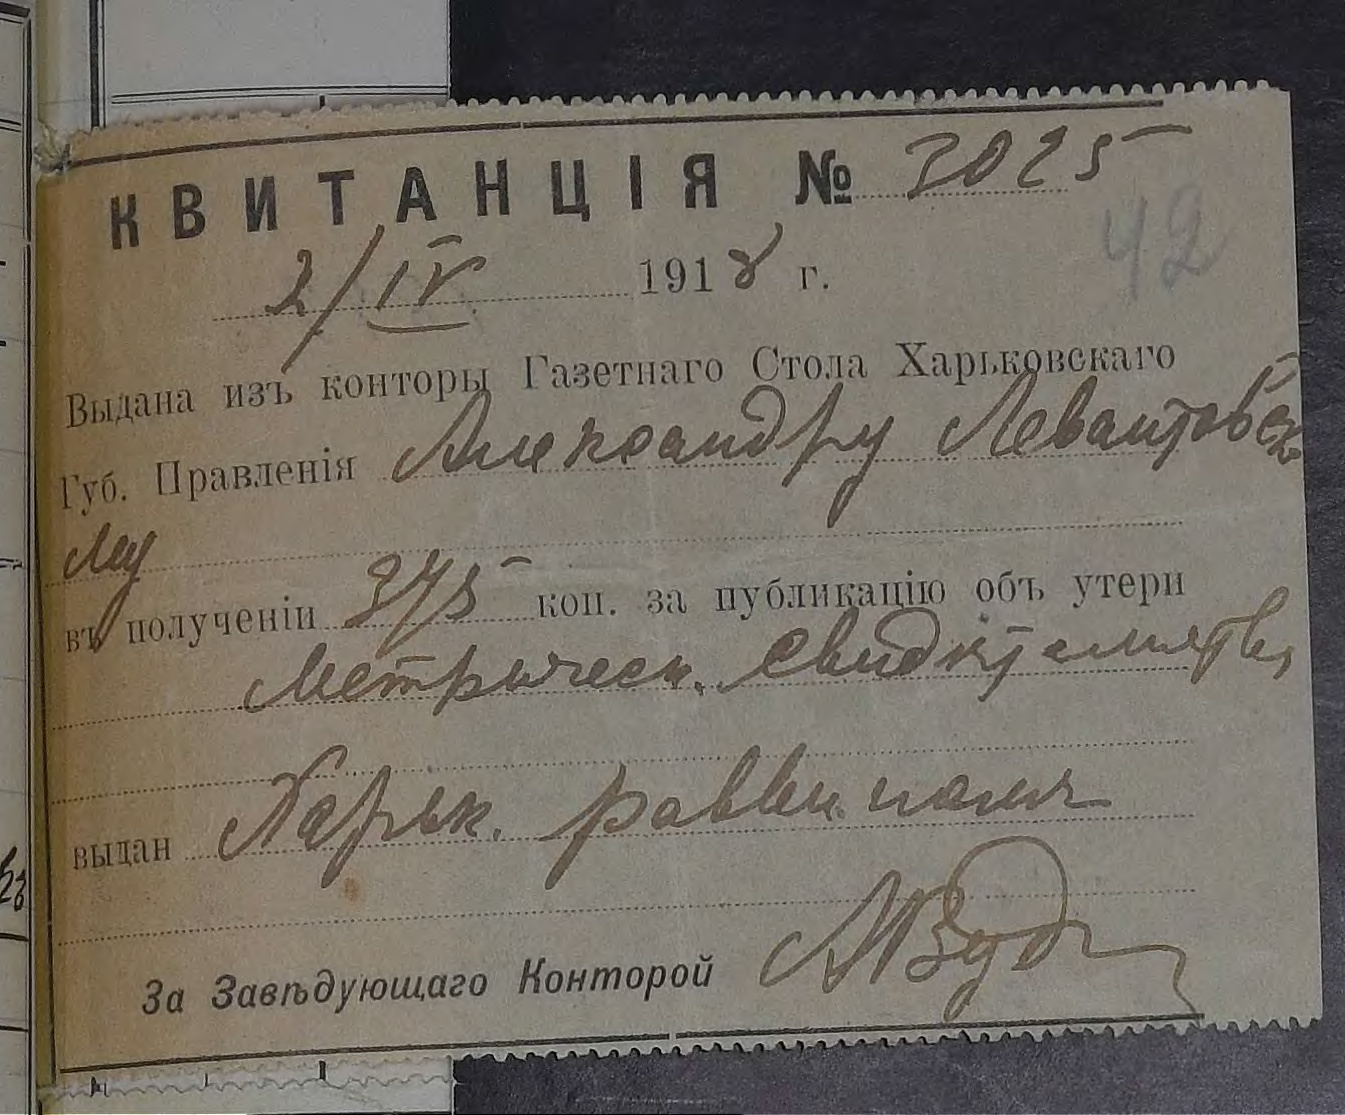 КВИТАНЦІЯ № 3025
42
2/IV 1918 г.
Выдана изъ конторы Газетнаго Стола Харьковскаго
Губ. Правленія Александру Левантовско
му
въ полученіи 375 коп. за публикацію объ утери
Метрическ. свидѣтельства,
выдан Харьк. раввиномъ
За Завѣдующаго Конторой